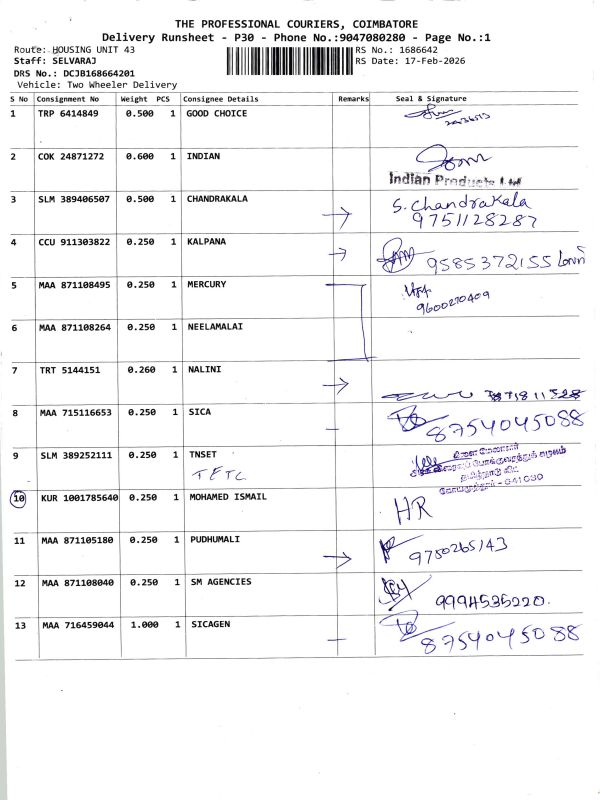 THE PROFESSIONAL COURIERS, COIMBATORE
Delivery Runsheet - P30 - Phone No.:9047080280 - Page No.:1
Route: HOUSING UNIT 43 RS No.: 1686642
Staff: SELVARAJ RS Date: 17-Feb-2026
DRS No.: DCJB168664201
Vehicle: Two Wheeler Delivery
S No Consignment No Weight PCS Consignee Details Remarks Seal & Signature
1 TRP 6414849 0.500 1 GOOD CHOICE
2 COK 24871272 0.600 1 INDIAN
Indian Products Ltd
3 SLM 389406507 0.500 1 CHANDRAKALA S. Chandrakala
9751128287
4 CCU 911303822 0.250 1 KALPANA 9585372155
5 MAA 871108495 0.250 1 MERCURY
9600270409
6 MAA 871108264 0.250 1 NEELAMALAI
7 TRT 5144151 0.260 1 NALINI
8 MAA 715116653 0.250 1 SICA 8754045088
9 SLM 389252111 0.250 1 TNSET
TETC
கோயமுத்தூர் - 641030
10 KUR 1001785640 0.250 1 MOHAMED ISMAIL HR
11 MAA 871105180 0.250 1 PUDHUMALI 9750265143
12 MAA 871108040 0.250 1 SM AGENCIES
9994535220.
13 MAA 716459044 1.000 1 SICAGEN 8754045088